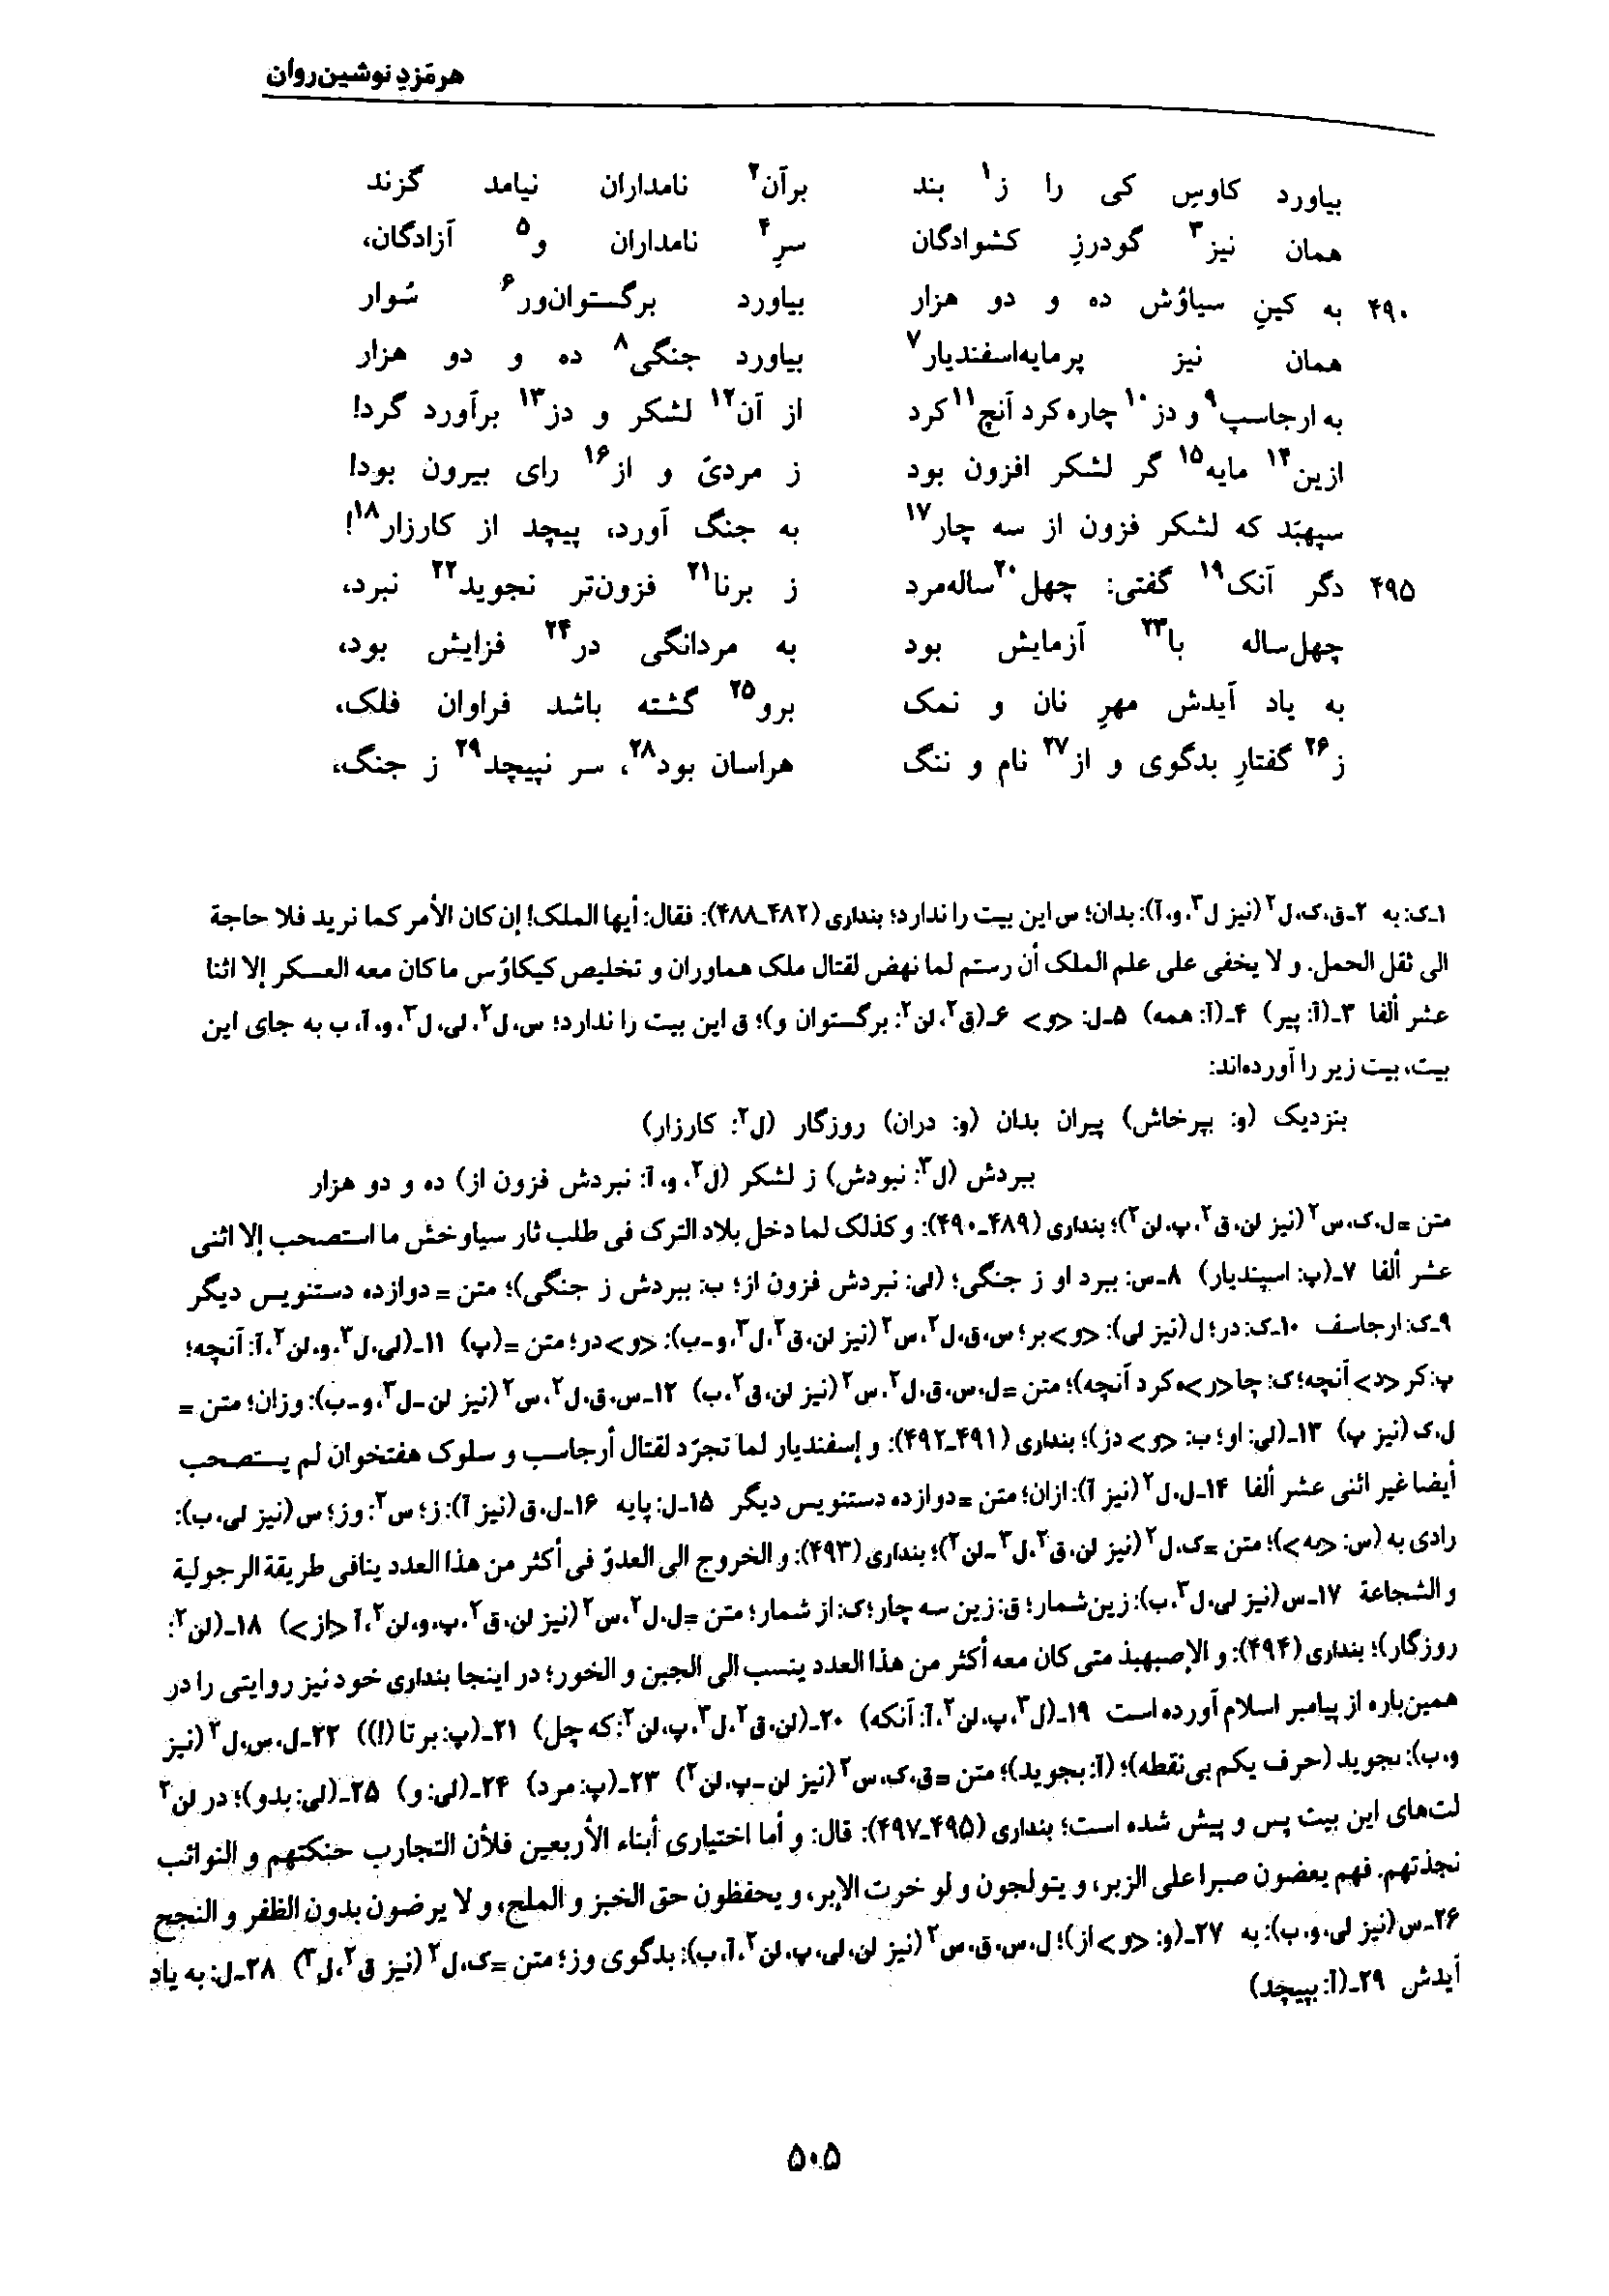 هرمَزدِ نوشین‌روان
بیاورد کاوسِ کی را ز۱ بند برآن۲ نامداران نیامد گزند
همان نیز۳ گودرزِ کشوادگان سرِ۴ نامداران و۵ آزادگان،
۴۹۰ به کینِ سیاوُش ده و دو هزار بیاورد برگستوان‌ور۶ سُوار
همان نیز پرمایه‌اسفندیار۷ بیاورد جنگی۸ ده و دو هزار
به ارجاسپ۹ و دز۱۰ چاره کرد آنچ۱۱ کرد از آن۱۲ لشکر و دز۱۳ برآورد گرد!
ازین۱۴ مایه۱۵ گر لشکر افزون بود ز مردیّ و از۱۶ رای بیرون بود!
سپهبَد که لشکر فزون از سه چار۱۷ به جنگ آورد، پیچد از کارزار۱۸!
۴۹۵ دگر آنک۱۹ گفتی: چهل۲۰ساله‌مرد ز برنا۲۱ فزون‌تر نجوید۲۲ نبرد،
چهل‌ساله با۲۳ آزمایش بود به مردانگی در۲۴ فزایش بود،
به یاد آیدش مهرِ نان و نمک برو۲۵ گشته باشد فراوان فلک،
ز۲۶ گفتارِ بدگوی و از۲۷ نام و ننگ هراسان بود۲۸، سر نپیچد۲۹ ز جنگ،
۱ـک: به ۲ـق، ک، ل۲ (نیز ل۳، و، آ): بدان؛ س این بیت را ندارد؛ بنداری (۴۸۲ـ۴۸۸): فقال: أیها الملک! إن کان الأمر کما نرید فلا حاجة
الی ثقل الحمل. و لا یخفی علی علم الملک أن رستم لما نهض لقتال ملک هماوران و تخلیص کیکاوُس ما کان معه العسکر إلا اثنا
عشر ألفا ۳ـ(آ: پیر) ۴ـ(آ: همه) ۵ـل: <و> ۶ـ(ق۲، لن۲: برگستوان و)؛ ق این بیت را ندارد؛ س، ل۲، لی، ل۳، و، آ، ب به جای این
بیت، بیت زیر را آورده‌اند:
بنزدیک (و: بپرخاش) پیران بدان (و: دران) روزگار (ل۲: کارزار)
ببردش (ل۳: نبودش) ز لشکر (ل۲، و، آ: نبردش فزون از) ده و دو هزار
متن =ل، ک، س۲ (نیز لن، ق۲، پ، لن۲)؛ بنداری (۴۸۹ـ۴۹۰): و کذلک لما دخل بلاد الترک فی طلب ثار سیاوخش ما استصحب إلا اثنی
عشر ألفا ۷ـ(پ: اسپندیار) ۸ـس: ببرد او ز جنگی؛ (لی: نبردش فزون از؛ ب: ببردش ز جنگی)؛ متن = دوازده دستنویس دیگر
۹ـک: ارجاسف ۱۰ـک: در؛ ل (نیز لی): <و>بر؛ س، ق، ل۲، س۲ (نیز لن، ق۲، ل۳، و-ب): <و>در؛ متن =(پ) ۱۱ـ(لی، ل۳، و، لن۲، آ: آنچه؛
پ: کر<د> آنچه؛ ک: چا<ر>ه کرد آنچه)؛ متن =ل، س، ق، ل۲، س۲ (نیز لن، ق۲، ب) ۱۲ـس، ق، ل۲، س۲ (نیز لن-ل۳، و-ب): وزان؛ متن =
ل، ک (نیز پ) ۱۳ـ(لی: او؛ ب: <و>دز)؛ بنداری (۴۹۱ـ۴۹۲): و إسفندیار لما تجرّد لقتال أرجاسب و سلوک هفتخوان لم یستصحب
أیضا غیر اثنی عشر ألفا ۱۴ـل، ل۲ (نیز آ): ازان؛ متن =دوازده دستنویس دیگر ۱۵ـل: پایه ۱۶ـل، ق (نیز آ): ز؛ س۲: وز؛ س (نیز لی، ب):
رادی به (س: <به>)؛ متن =ک، ل۲ (نیز لن، ق۲، ل۳-لن۲)؛ بنداری (۴۹۳): و الخروج الی العدوّ فی أکثر من هذا العدد ینافی طریقة الرجولیة
و الشجاعة ۱۷ـس (نیز لی، ل۳، ب): زین‌شمار؛ ق: زین سه چار؛ ک: از شمار؛ متن =ل، ل۲، س۲ (نیز لن، ق۲، پ، و، لن۲، آ <از>) ۱۸ـ(لن۲:
روزگار)؛ بنداری (۴۹۴): و الإصبهبذ متی کان معه أکثر من هذا العدد ینسب الی الجبن و الخور؛ در اینجا بنداری خود نیز روایتی را در
همین‌باره از پیامبر اسلام آورده است ۱۹ـ(ل۳، پ، لن۲، آ: آنکه) ۲۰ـ(لن، ق۲، ل۳، پ، لن۲: که چل) ۲۱ـ(پ: برتا (!)) ۲۲ـل، س، ل۲ (نیز
و، ب): ںجوید (حرف یکم بی‌نقطه)؛ (آ: بجوید)؛ متن =ق، ک، س۲ (نیز لن-پ، لن۲) ۲۳ـ(پ: مرد) ۲۴ـ(لی: و) ۲۵ـ(لی: بدو)؛ در لن۲
لت‌های این بیت پس و پیش شده است؛ بنداری (۴۹۵ـ۴۹۷): قال: و أما اختیاری أبناء الأربعین فلأن التجارب حنکتهم و النوائب
نجذتهم. فهم یعضون صبرا علی الزبر، و یتولجون و لو خرت الإبر، و یحفظون حق الخبز و الملح، و لا یرضون بدون الظفر و النجح
۲۶ـس (نیز لی، و، ب): به ۲۷ـ(و: <و>از)؛ ل، س، ق، س۲ (نیز لن، لی، پ، لن۲، آ، ب): بدگوی وز؛ متن =ک، ل۲ (نیز ق۲، ل۳) ۲۸ـل: به یاد
آیدش ۲۹ـ(آ: بپیچد)
۵۰۵